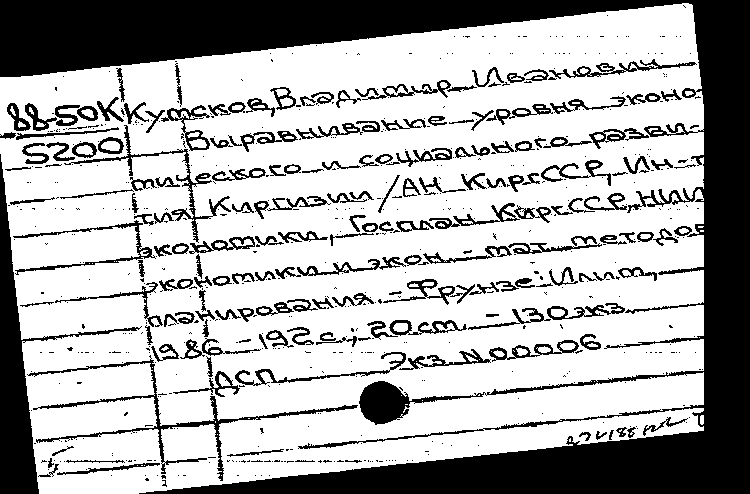 88-50К Кутсков, Владимир Иванович
5200 Выравнивание уровня эконо-
мического и социального разви-
тия Киргизии / АН КиргССР, Ин-т
экономики, Госплан КиргССР, НИИ
экономики и экон.-мат. методов
планирования. - Фрунзе: Илим,
1986. - 192 с.; 20 см. - 130 экз.
ДСП Экз N00006